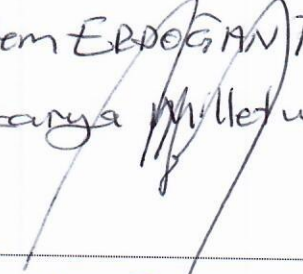 em ERDOĞAN
arya Milletv